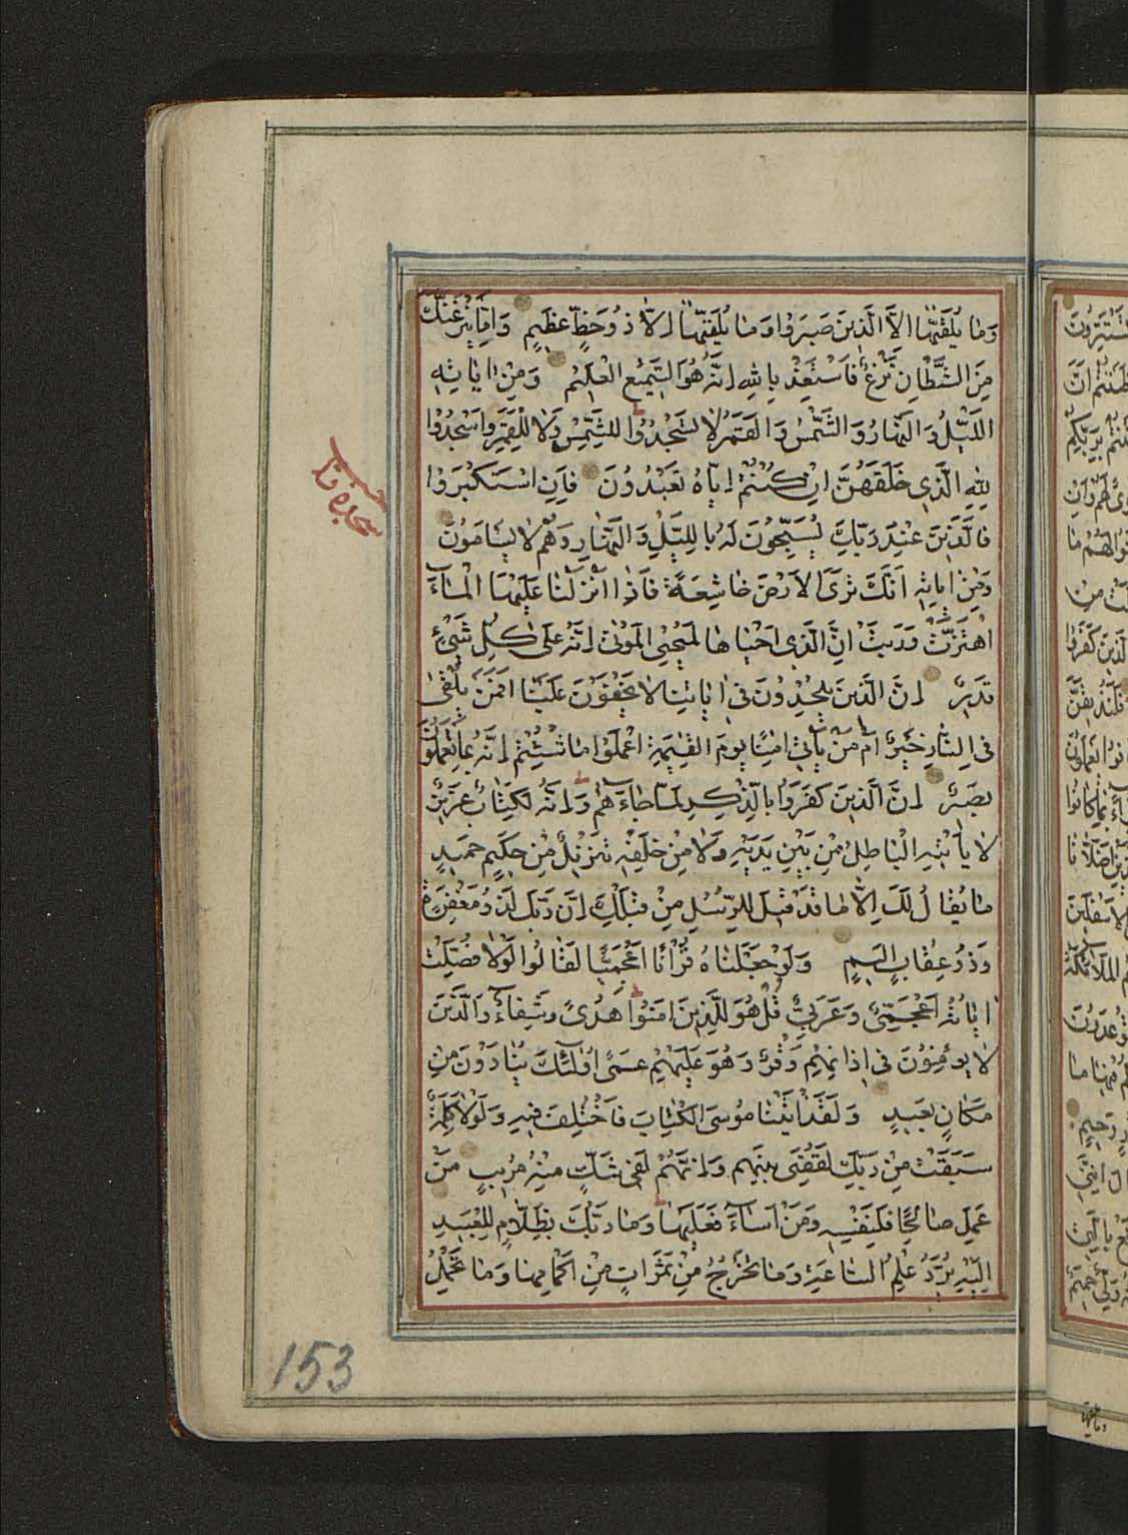 وَمَا يُلَقَّيٰهَا اِلَّا الَّذِينَ صَبَرُوا وَمَا يُلَقَّيٰهَا اِلَّا ذُو حَظٍّ عَظِيمٍ وَاِمَّا يَنْزَغَنَّكَ
مِنَ الشَّيْطَانِ نَزْغٌ فَاسْتَعِذْ بِاللهِ اِنَّهُ هُوَ السَّمِيعُ الْعَلِيمُ وَمِنْ اٰيَاتِهِ
اللَّيْلُ وَالنَّهَارُ وَالشَّمْسُ وَالْقَمَرُ لَا تَسْجُدُوا لِلشَّمْسِ وَلَا لِلْقَمَرِ وَاسْجُدُوا
لِلّٰهِ الَّذِي خَلَقَهُنَّ اِنْ كُنْتُمْ اِيَّاهُ تَعْبُدُونَ فَاِنِ اسْتَكْبَرُوا
فَالَّذِينَ عِنْدَ رَبِّكَ يُسَبِّحُونَ لَهُ بِاللَّيْلِ وَالنَّهَارِ وَهُمْ لَا يَسْأَمُونَ
وَمِنْ اٰيَاتِهِ اَنَّكَ تَرَى الْاَرْضَ خَاشِعَةً فَاِذَا اَنْزَلْنَا عَلَيْهَا الْمَاءَ
اهْتَزَّتْ وَرَبَتْ اِنَّ الَّذِي اَحْيَاهَا لَمُحْيِي الْمَوْتٰى اِنَّهُ عَلٰى كُلِّ شَيْءٍ
قَدِيرٌ اِنَّ الَّذِينَ يُلْحِدُونَ فِي اٰيَاتِنَا لَا يَخْفَوْنَ عَلَيْنَا اَفَمَنْ يُلْقٰى
فِي النَّارِ خَيْرٌ اَمْ مَنْ يَأْتِي اٰمِنًا يَوْمَ الْقِيٰمَةِ اعْمَلُوا مَا شِئْتُمْ اِنَّهُ بِمَا تَعْمَلُونَ
بَصِيرٌ اِنَّ الَّذِينَ كَفَرُوا بِالذِّكْرِ لَمَّا جَاءَهُمْ وَاِنَّهُ لَكِتَابٌ عَزِيزٌ
لَا يَأْتِيهِ الْبَاطِلُ مِنْ بَيْنِ يَدَيْهِ وَلَا مِنْ خَلْفِهِ تَنْزِيلٌ مِنْ حَكِيمٍ حَمِيدٍ
مَا يُقَالُ لَكَ اِلَّا مَا قَدْ قِيلَ لِلرُّسُلِ مِنْ قَبْلِكَ اِنَّ رَبَّكَ لَذُو مَغْفِرَةٍ
وَذُو عِقَابٍ اَلِيمٍ وَلَوْ جَعَلْنَاهُ قُرْاٰنًا اَعْجَمِيًّا لَقَالُوا لَوْلَا فُصِّلَتْ
اٰيَاتُهُ اَعْجَمِيٌّ وَعَرَبِيٌّ قُلْ هُوَ لِلَّذِينَ اٰمَنُوا هُدًى وَشِفَاءٌ وَالَّذِينَ
لَا يُؤْمِنُونَ فِي اٰذَانِهِمْ وَقْرٌ وَهُوَ عَلَيْهِمْ عَمًى اُولٰئِكَ يُنَادَوْنَ مِنْ
مَكَانٍ بَعِيدٍ وَلَقَدْ اٰتَيْنَا مُوسَى الْكِتَابَ فَاخْتُلِفَ فِيهِ وَلَوْلَا كَلِمَةٌ
سَبَقَتْ مِنْ رَبِّكَ لَقُضِيَ بَيْنَهُمْ وَاِنَّهُمْ لَفِي شَكٍّ مِنْهُ مُرِيبٍ مَنْ
عَمِلَ صَالِحًا فَلِنَفْسِهِ وَمَنْ اَسَاءَ فَعَلَيْهَا وَمَا رَبُّكَ بِظَلَّامٍ لِلْعَبِيدِ
اِلَيْهِ يُرَدُّ عِلْمُ السَّاعَةِ وَمَا تَخْرُجُ مِنْ ثَمَرَاتٍ مِنْ اَكْمَامِهَا وَمَا تَحْمِلُ
153